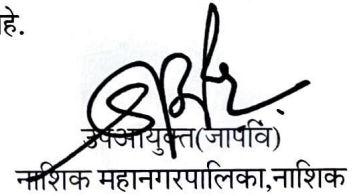 हे.
उपआयुक्त(जापवि)
नाशिक महानगरपालिका,नाशिक